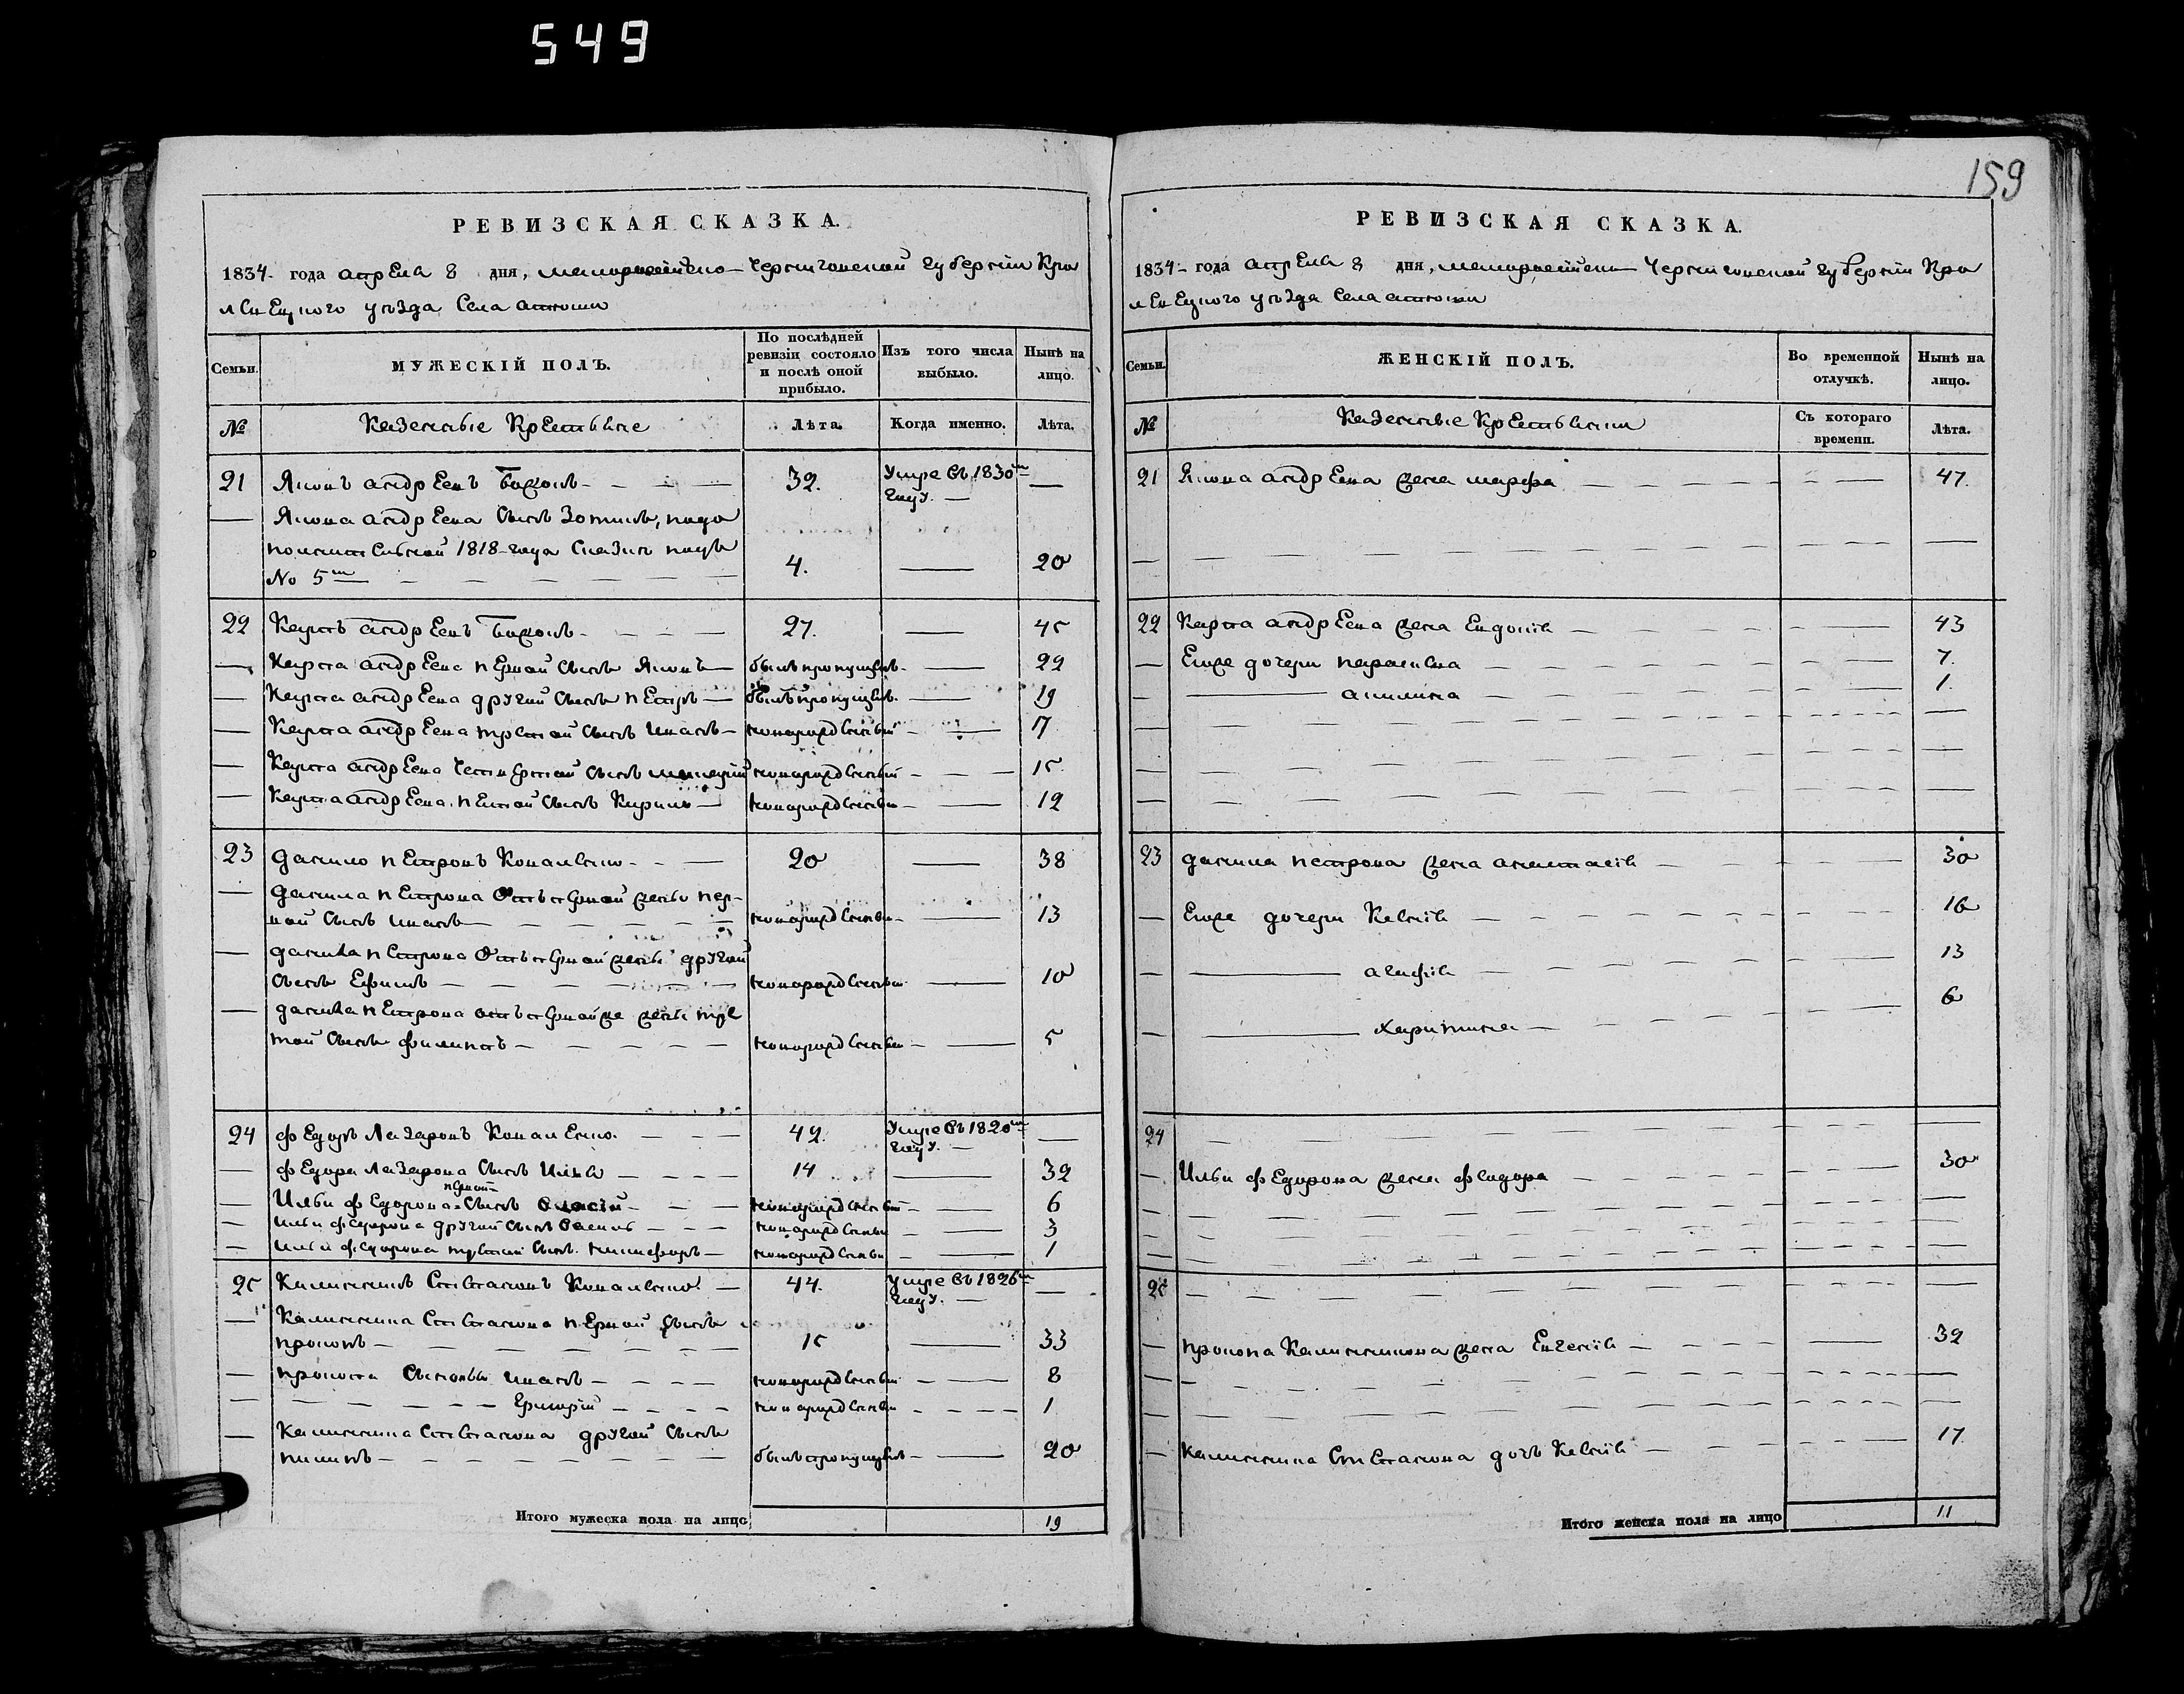 549
159
РЕВИЗСКАЯ СКАЗКА.
1834 года апреля 8 дня, малороссийско Черниговской губернии Кро
левецкого уезда Села
Семьи.
МУЖЕСКІЙ ПОЛЪ.
По послѣдней ревизіи состояло и послѣ оной прибыло.
Изъ того числа выбыло.
Нынѣ на лицо.
№
Казенные Крестьяне
Лѣта.
Когда именно.
Лѣта.
21 Яковъ андреевъ 32. Умре въ 1830м году. —
— Якова андреева сынъ Зотикъ, по до
полнительной 1818 года сказки подъ
№ 5м — 4. — 20
22 Карпъ андреевъ 27. — 45
— Карпа андреева первой сынъ Яковъ — былъ пропущенъ — 22
— Карпа андреева другий сынъ петръ — былъ пропущенъ — 19
— Карпа андреева третий сынъ иванъ — новорожденный — 17
— Карпа андреева четвертой сынъ новорожденный — 15
— Карпа андреева пятой сынъ Кирило — новорожденный — 12
23 данило петровъ Коваленко — 20 — 38
— данила петрова отъ первой жены пер-
вой сынъ иванъ — новорожденный — 13
— данила петрова отъ первой жены другий
сынъ Ефимъ — новорожденный — 10
— данила петрова отъ первой же жены тре
тий сынъ филипъ — новорожденный — 5
24 федоръ Лазаровъ Коваленко. 42. Умре въ 1820м году. —
— федора Лазарова сынъ Илья — 14 — 32
— Ильи федорова первой сынъ — новорожденный — 6
— Ильи федорова другий сынъ — новорожденный — 3
— Ильи федорова третий сынъ никифоръ — новорожденный — 1
25 Калинникъ Степановъ Коваленко — 44. Умре въ 1826м году. —
— Калинника Степанова первой сынъ
прокопъ — 15 — 33
— прокопа сыновья иванъ — новорожденный — 8
— Григорий — новорожденный — 1
— Калинника Степанова другий сынъ
пилипъ — былъ пропущенъ — 20
Итого мужеска пола на лицо 19
РЕВИЗСКАЯ СКАЗКА.
1834 года апреля 8 дня, малороссийско Черниговской губернии Кро
левецкого уезда Села
Семьи.
ЖЕНСКІЙ ПОЛЪ.
Во временной отлучкѣ.
Нынѣ на лицо.
№
Казенные Крестьянки
Съ котораго времени.
Лѣта.
21 Якова андреева жена марфа — 47.
22 Карпа андреева жена Евдокия — 43
— Егоже дочери параскева — 7.
— акилина — 1.
23 данила петрова жена анастасия — 30
— Егоже дочери Ксения — 16
— агафия — 13
— Харитина — 6
24
— Ильи федорова жена феодора — 30
25
— прокопа Калинникова жена Евгения — 32
— Калинника Степанова дочь Ксения — 17
Итого женска пола на лицо 11